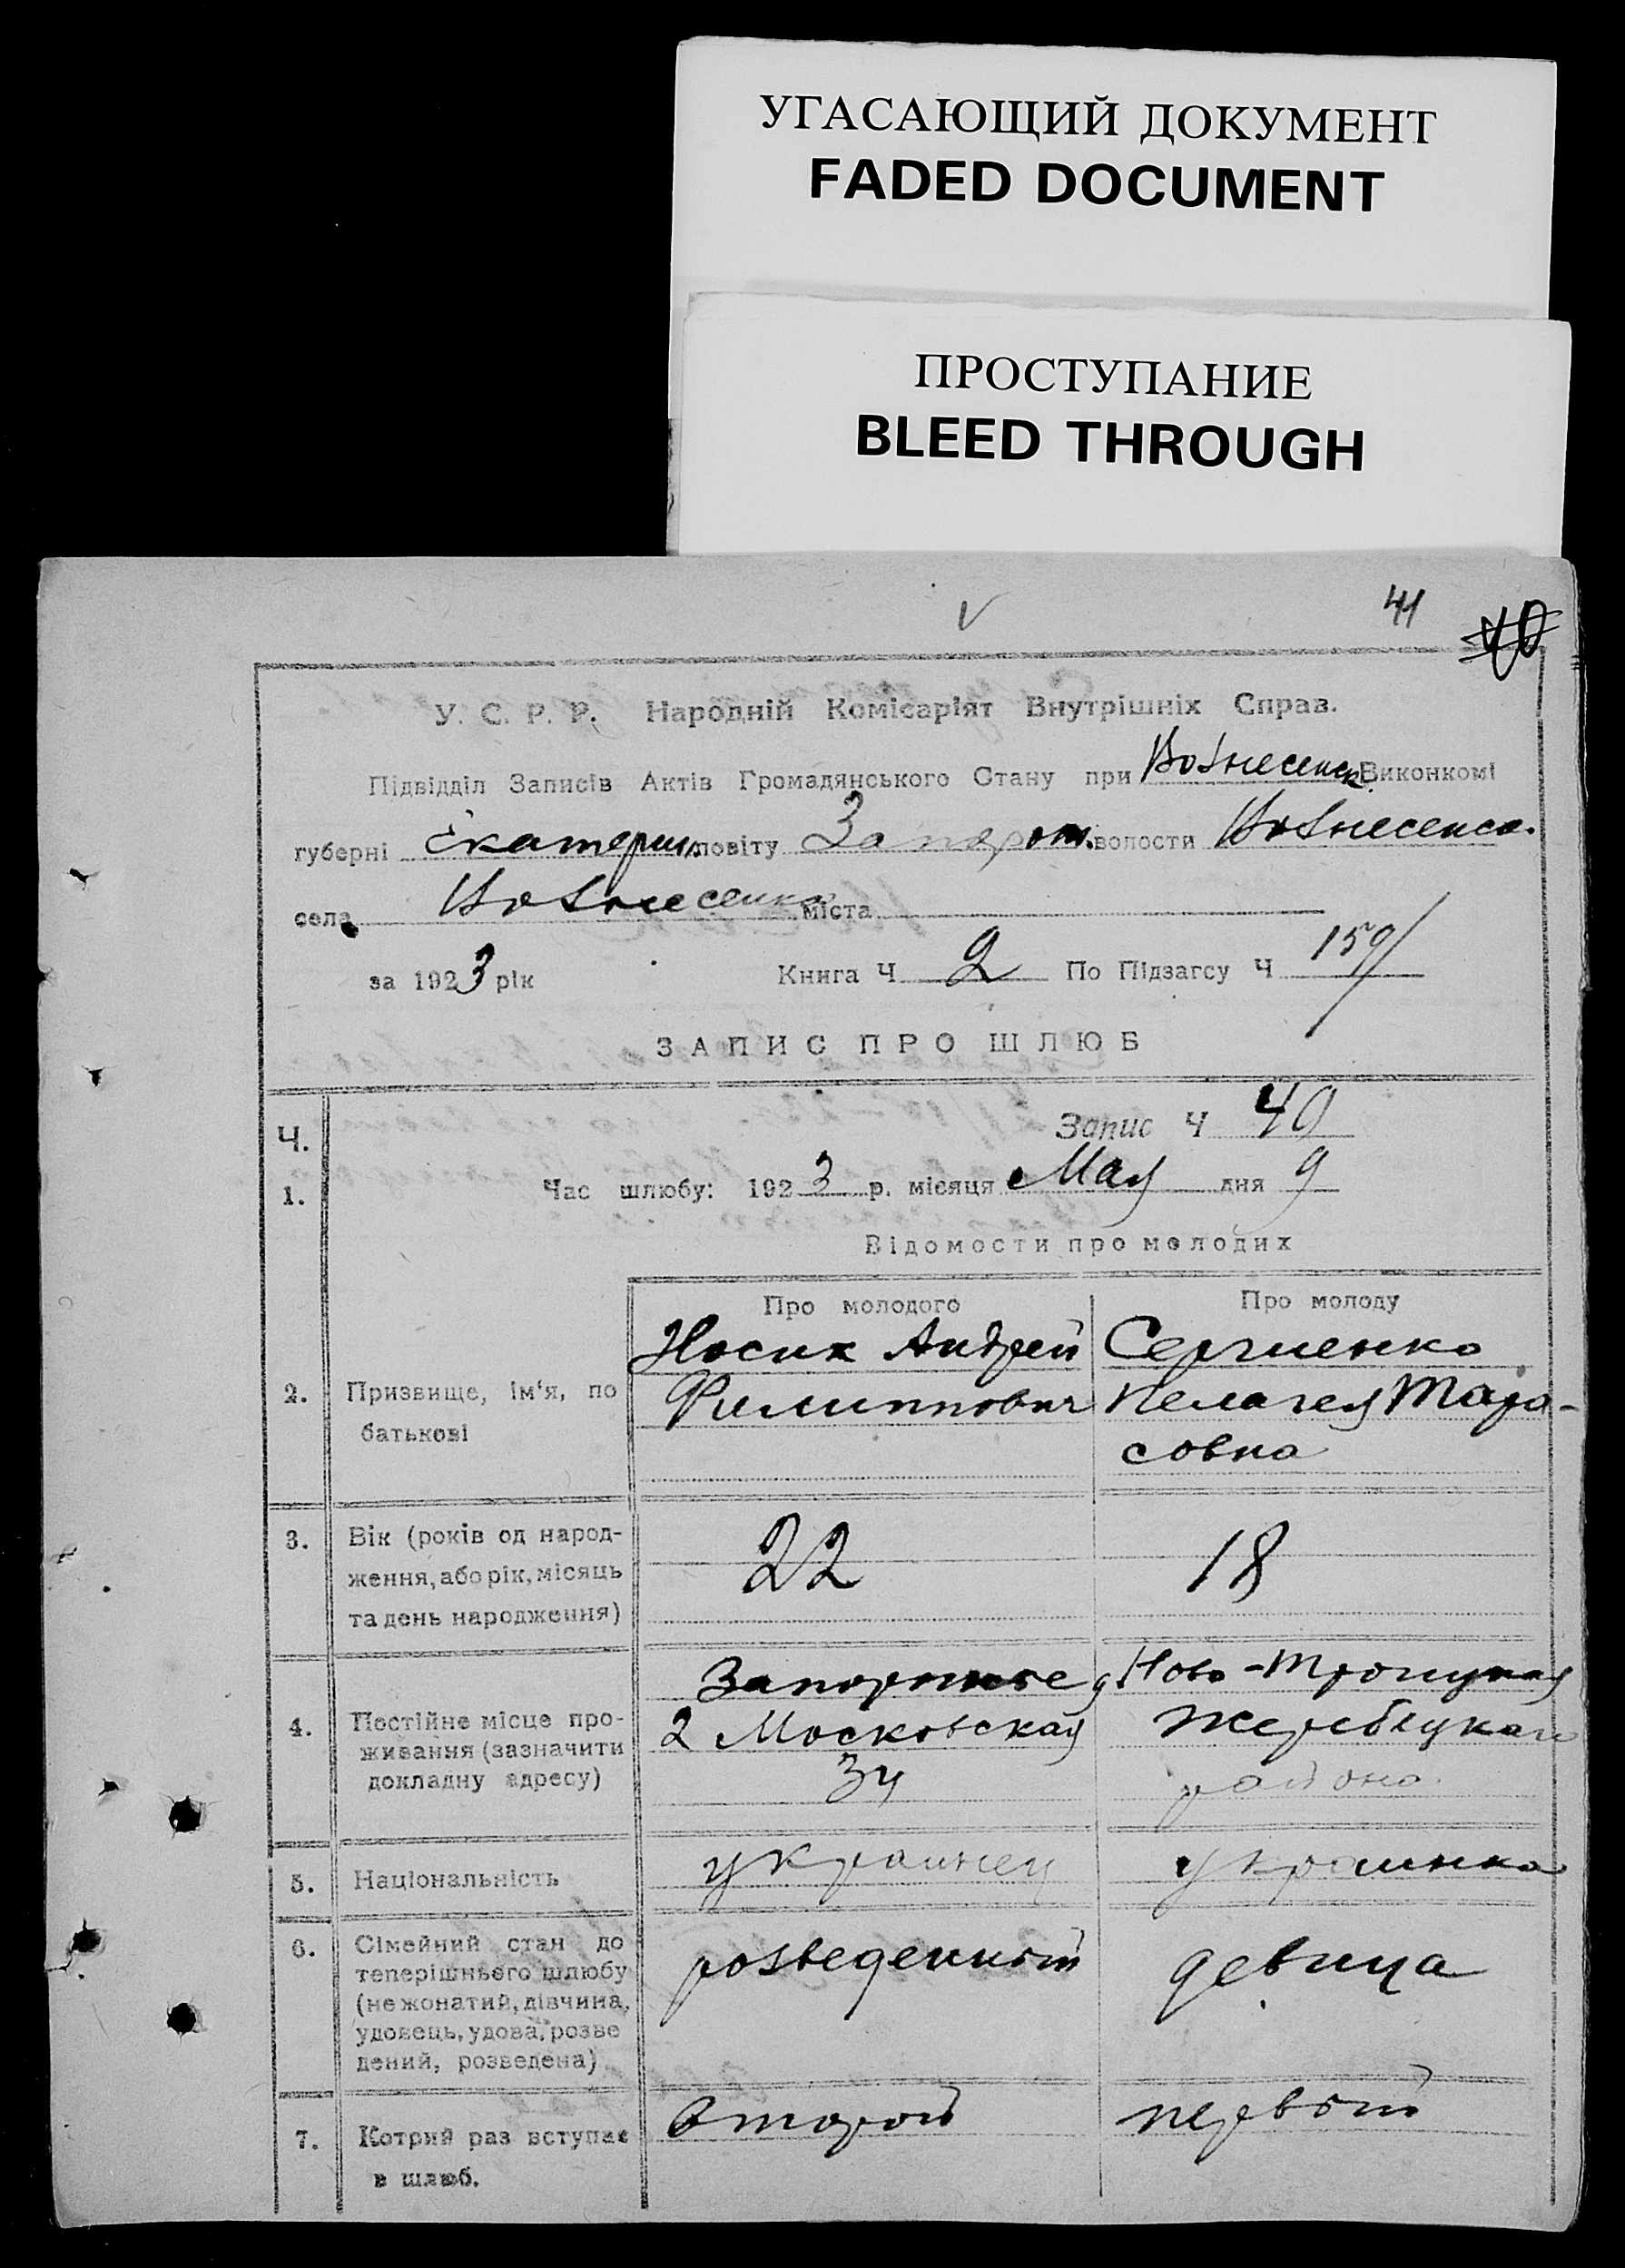 УГАСАЮЩИЙ ДОКУМЕНТ
FADED DOCUMENT
ПРОСТУПАНИЕ
BLEED THROUGH
41
У. С. Р. Р. Народній Комісаріят Внутрішніх Справ.
Підвідділ Записів Актів Громадянського Стану при Вознесенск. Виконкомі
губерні Екатерин. повіту Запорож. волости Вознесенск.
села Вознесенка міста
за 1923 рік Книга Ч 2 По Підзагсу Ч 159/
ЗАПИС ПРО ШЛЮБ
Ч. Запис Ч 40
1. Час шлюбу: 1923 р. місяця Мая дня 9
Відомости про молодих
Про молодого Про молоду
Носик Андрей Сергиенко
2. Призвище, ім'я, по Филиппович Пелагея Тара-
батькові совна
3. Вік (років од народ-
ження, або рік, місяць 22 18
та день народження)
Запорожье Ново-Троицкая
4. Постійне місце про- 2 Московская Жеребецкого
живання (зазначити
докладну адресу) 34 района
5. Національність украинец украинка
6. Сімейний стан до
теперішнього шлюбу розведенный девица
(не жонатий, дівчина,
удовець, удова, розве
дений, розведена)
7. Котрий раз вступає второй первый
в шлюб.